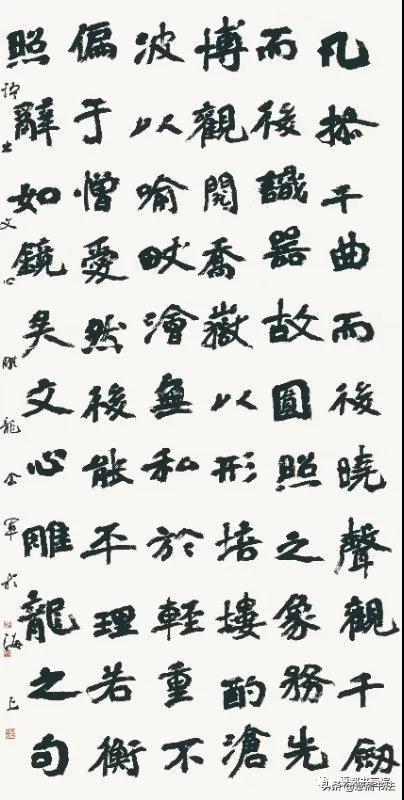 凡操千曲而後曉聲觀千劍
而後識器故圓照之象務先
博觀閱喬嶽以形培塿酌滄
波以喻畎澮無私於輕重不
偏于憎愛然後能平理若衡
照辭如鏡矣文心雕龍之句
出文心雕龍金軍於海上
头条